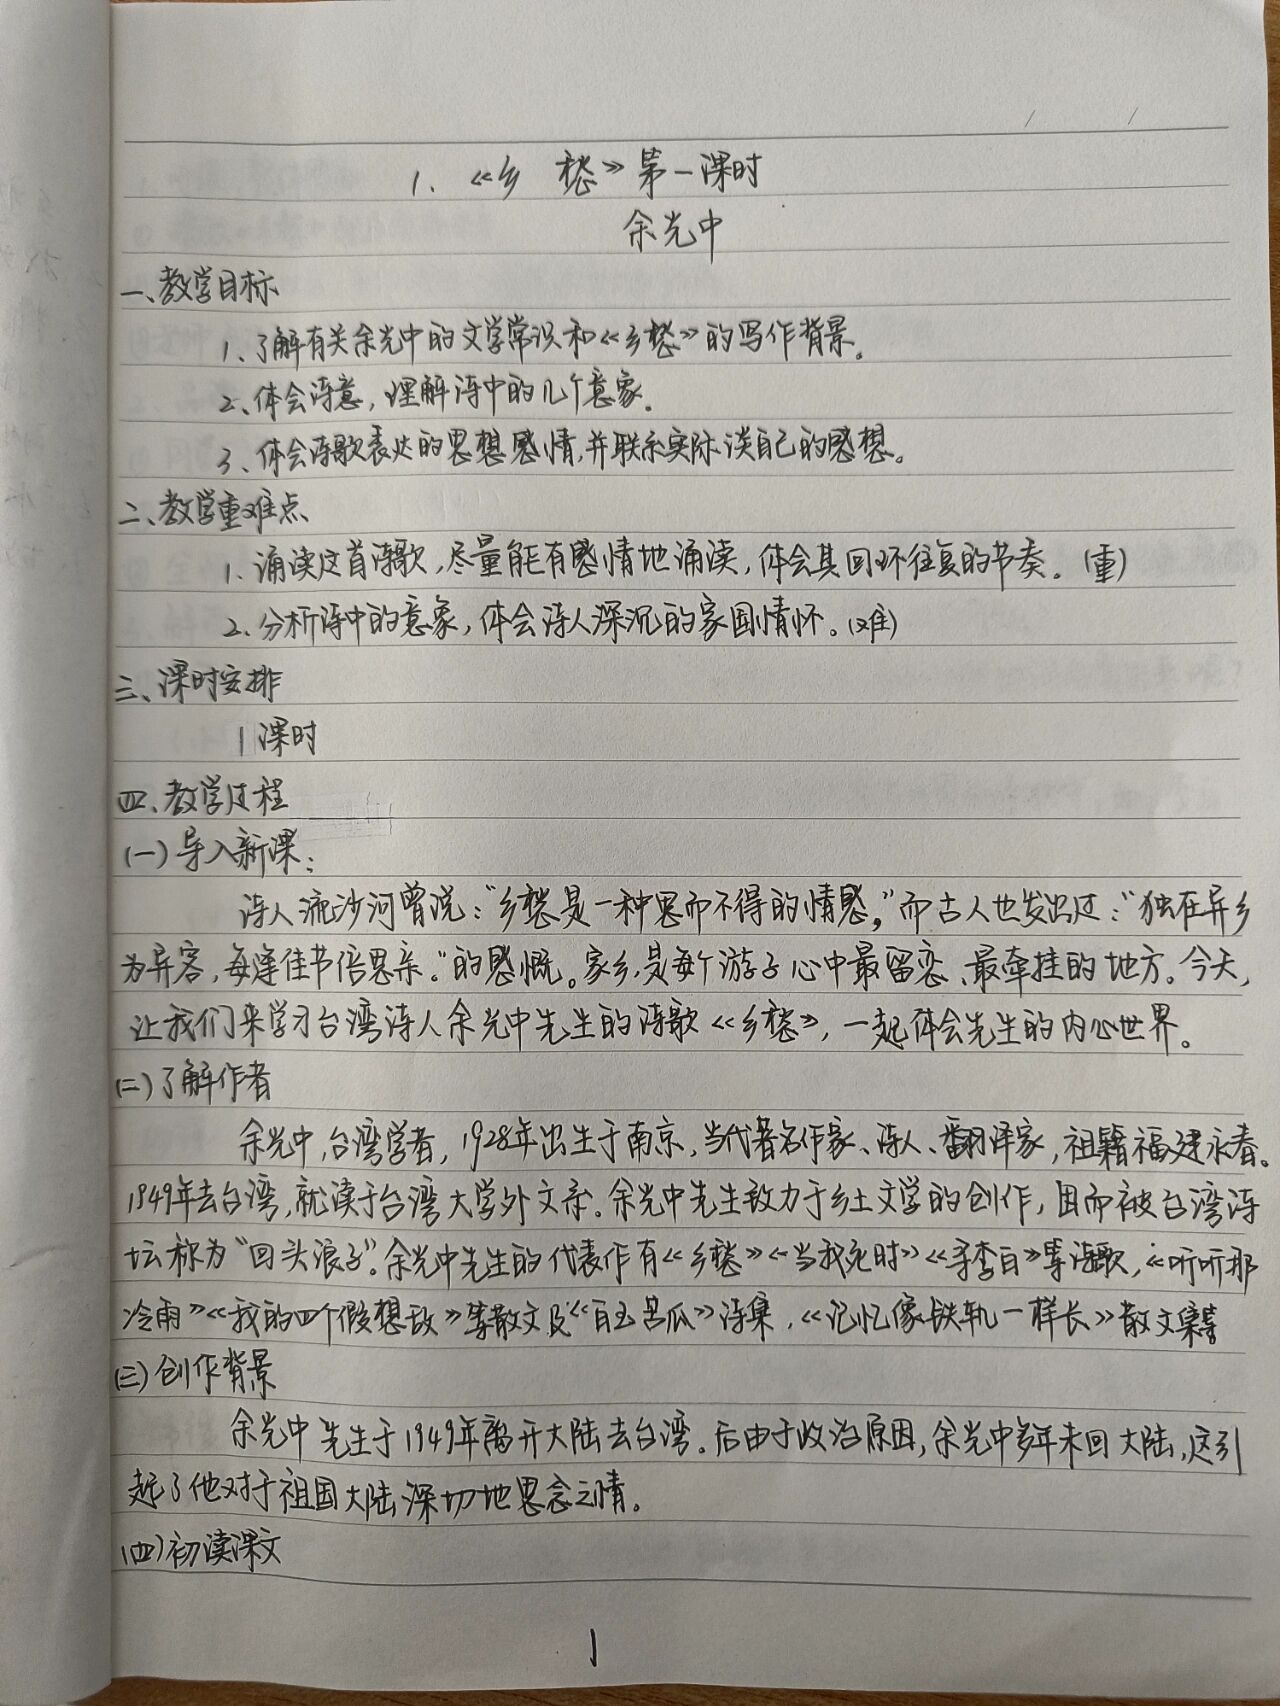 1、《乡 愁》第一课时
余光中
一、教学目标
1、了解有关余光中的文学常识和《乡愁》的写作背景。
2、体会诗意，理解诗中的几个意象。
3、体会诗歌表达的思想感情，并联系实际谈自己的感想。
二、教学重难点
1、诵读这首诗歌，尽量能有感情地诵读，体会其回环往复的节奏。（重）
2、分析诗中的意象，体会诗人深沉的家国情怀。（难）
三、课时安排
1课时
四、教学过程
（一）导入新课：
诗人流沙河曾说：“乡愁是一种思而不得的情感，”而古人也发出过：“独在异乡
为异客，每逢佳节倍思亲。”的感慨。家乡，是每个游子心中最留恋、最牵挂的地方。今天，
让我们来学习台湾诗人余光中先生的诗歌《乡愁》，一起体会先生的内心世界。
（二）了解作者
余光中，台湾学者，1928年出生于南京，当代著名作家、诗人、翻译家，祖籍福建永春。
1949年去台湾，就读于台湾大学外文系。余光中先生致力于乡土文学的创作，因而被台湾诗
坛称为“回头浪子”。余光中先生的代表作有《乡愁》《当我死时》《寻李白》等诗歌，《听听那
冷雨》《我的四个假想敌》等散文及《白玉苦瓜》诗集，《记忆像铁轨一样长》散文集等
（三）创作背景
余光中先生于1949年离开大陆去台湾。后由于政治原因，余光中多年未回大陆，这引
起了他对于祖国大陆深切地思念之情。
（四）初读课文
1